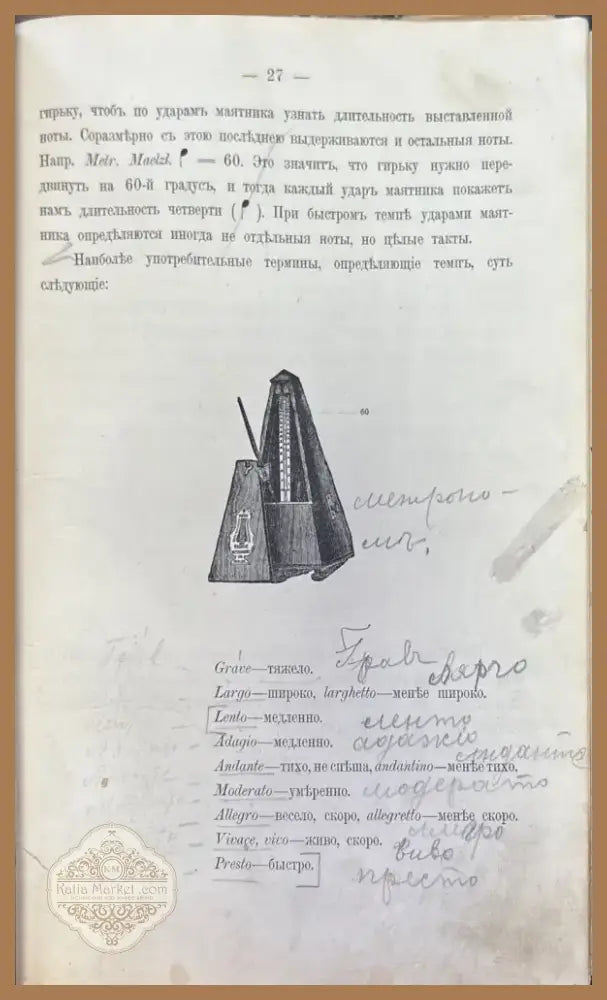 — 27 —
гирьку, чтобъ по ударамъ маятника узнать длительность выставленной
ноты. Соразмѣрно съ этою послѣднею выдерживаются и остальныя ноты.
Напр. Metr. Maelzl. — 60. Это значитъ, что гирьку нужно пере-
двинуть на 60-й градусъ, и тогда каждый ударъ маятника покажетъ
намъ длительность четверти ( ). При быстромъ темпѣ ударами маят-
ника опредѣляются иногда не отдѣльныя ноты, но цѣлые такты.
Наиболѣе употребительные термины, опредѣляющіе темпъ, суть
слѣдующіе:
60
метроно-
мъ.
Grave—тяжело. Гравъ
Largo—широко, larghetto—менѣе широко. Лярго
Lento—медленно. ленто
Adagio—медленно. адажио
Andante—тихо, не спѣша, andantino—менѣе тихо. Андантѣ
Moderato—умѣренно. модерато
Allegro—весело, скоро, allegretto—менѣе скоро.
Vivace, vivo—живо, скоро. виво
Presto—быстро. престо
KM
Katia Market .com